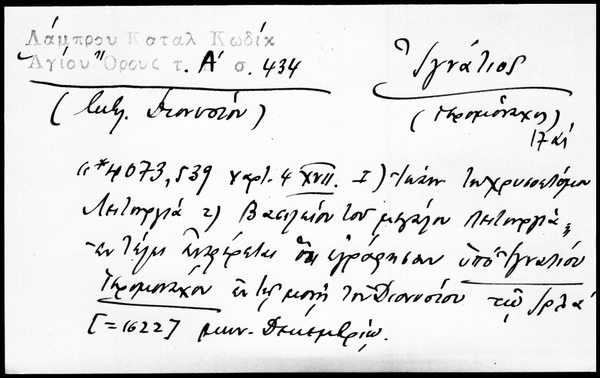 Λάμπρου Καταλ Κωδίκ
Ἁγίου Ὄρους τ. Α' σ. 434
Ἰγνάτιος
(Διονυσίου)
(Ἱερομόναχος)
17 αἰ
"*4073,539 χαρτ. 4 XVII. 1) Ἰωάν. τοῦ Χρυσοστόμου
Λειτουργία 2) Βασιλείου τοῦ μεγάλου Λειτουργία
ἐν τέλει ἀναφέρεται ὅτι ἐγράφησαν ὑπὸ Ἰγνατίου
Ἱερομονάχου ἐν τῇ μονῇ τοῦ Διονυσίου τῷ ζρλα'
[=1622] μην. Δεκεμβρίῳ.